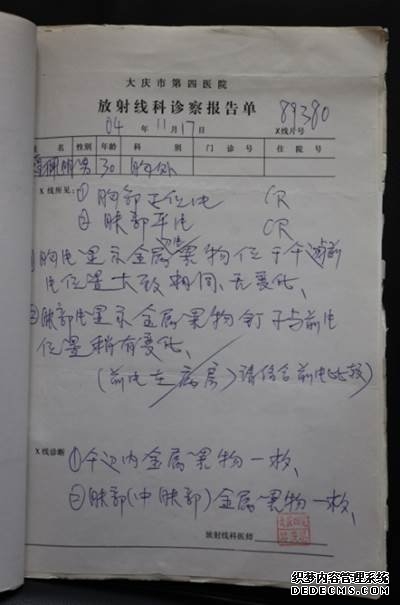 大庆市第四医院
放射线科诊察报告单
89380
04年11月17日 X线片号
姓名 性别 年龄 科别 门诊号 住院号
男 30 胸外
X线所见: ① 胸部正位片 CR
② 腹部平片 CR
① 胸片显示金属异物位于
片位置大致相同、无变化、
② 腹部片显示金属异物钉子与前片
位置稍有变化、
(前片在病房) 请结合前片比较
X线诊断 ① 内金属异物一枚、
② 腹部(中腹部)金属异物一枚、
放射线科医师
织梦内容管理系统
DEDECMS.COM